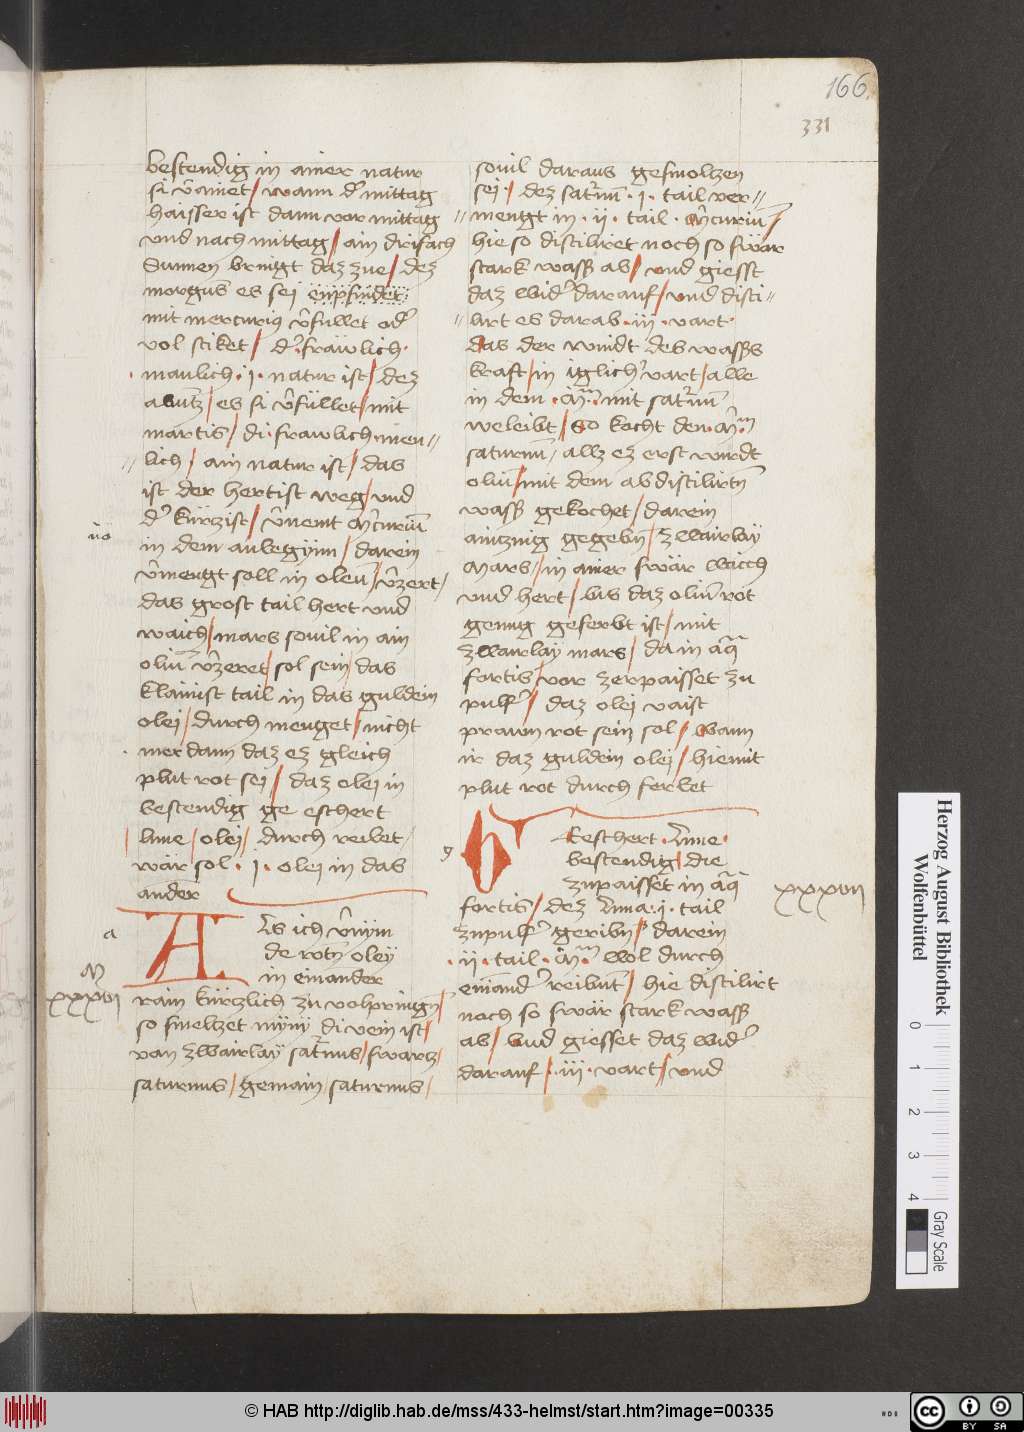 166
331
bestendig in ainer natur
si v̄ainet / wann d' mittag
haisser ist dann vor mittag
vnd nach mittag / ain drifach
Sunnen bringt daz zue / dez
morgens es sei enpfinder
mit mercurig v̄füllet od'
vol stiket / d' frawlich ·
manlich · i · natur ist / dez
/ es si v̄füllet / mit
martis / di frawlich men〃
〃lich / ain natur ist / das
ist der hertist weg / vnd
d' kürzist / v̄nemt
in dem anlegynn / darein
v̄mengt soll in oleū / v̄zert /
das grost tail hert vnd
waich / mars souil in ain
oliū v̄zeret / sol sein / das
klainist tail in das guldein
olei / durch menget / nicht
mer dann daz ez gleich
plut rot sei / daz olei in
bestendig ge eschert
lune / olei / durch reibet /
wär sol · i · olei in das
ander
a
Ls ich v̄nym
de rotn oley
in einander
M
xxxvi
rain kürzlich zu volpringn /
so smeltzet nym di vein ist /
van zwairlay satrnus / swarz /
saturnus / gemain / saturnus /
souil daraus gesmoltzen
sei · / dez satrnū · i · tail ver〃
〃mengt in · ii · tail · m̄curiū /
hie so distiliret noch so swär
stark wass ab / vnd giesst
daz wid' darauf / vnd disti〃
〃lirt es darab · iii · vart ·
das der windt des wasss
kraft / in iglich' vart / alle
in dem · mit satrnū
weleibt / so kocht den
saturnū / allz ez erst wirdt
oliū / mit dem abdistilirtn
wass gekochet / darein
aintznig gegebn / zwairlay
Mars / in ainer swär waich
vnd hert / bis daz oliū rot
genug geferbt ist / mit
zwairlay mars / da in aq̄
fortis / vor zerpaisset zu
pulf' / daz olei vaist
prawn rot sein sol / wann
ir daz guldein olei / hiemit
plut rot durch ferbet
g
Eeschert · lune ·
bestendig / die
zupaisset in aq̄
xxxvii
fortis / dez luna · i · tail
zupulf' geribn / darein
· ii · tail · wol durch
einand' reibent / hie distilirt
noch so swär stark wass
ab / vnd giesset daz wid'
darauf / · iii · vart / vnd
Herzog August Bibliothek
Wolfenbüttel
0 1 2 3 4
Gray Scale
© HAB http://diglib.hab.de/mss/433-helmst/start.htm?image=00335
HDB
cc BY SA